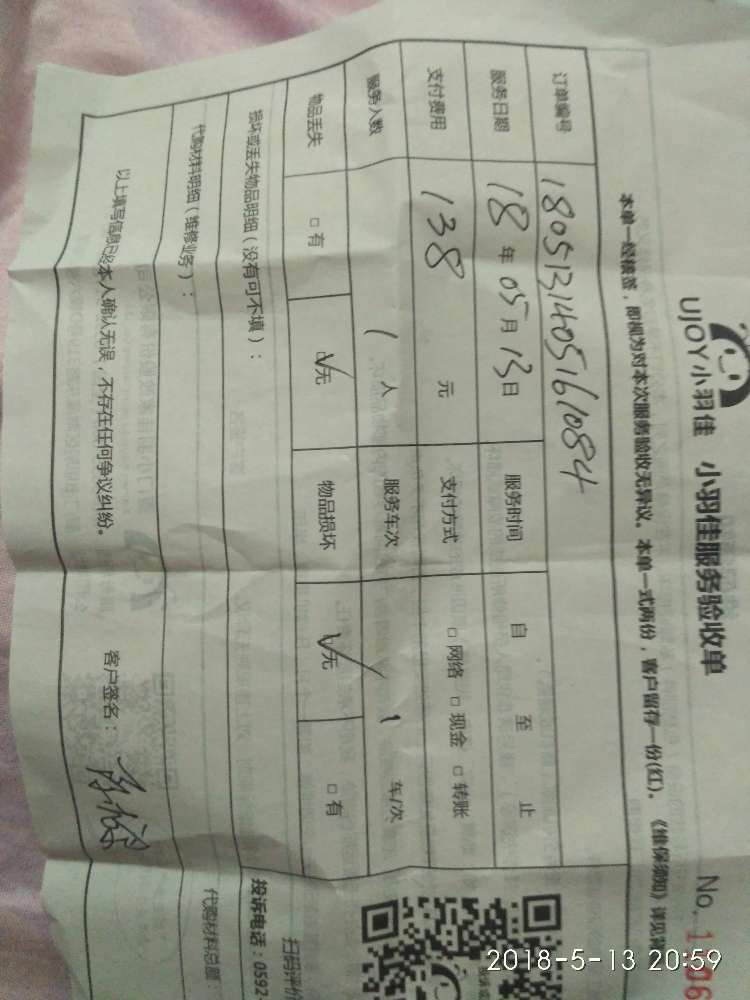 UJOY小羽佳 小羽佳服务验收单
No. 1
本单一经核签，即视为对本次服务验收无异议。本单一式两份，客户留存一份(红)。《维保须知》详见背
订单编号 1805131405161084
服务日期 18年05月13日 服务时间 自 至 止
支付费用 138 元 支付方式 □网络 □现金 □转账
服务人数 1人 服务车次 1 车/次
物品丢失 □有 ☑无 物品损坏 ☑无 □有
损坏或丢失物品明细（没有可不填）：
代购材料明细（维修业务）：
代购材料总额：
以上填写信息已经本人确认无误，不存在任何争议纠纷。 客户签名：
扫码评价
投诉电话：0592
2018-5-13 20:59